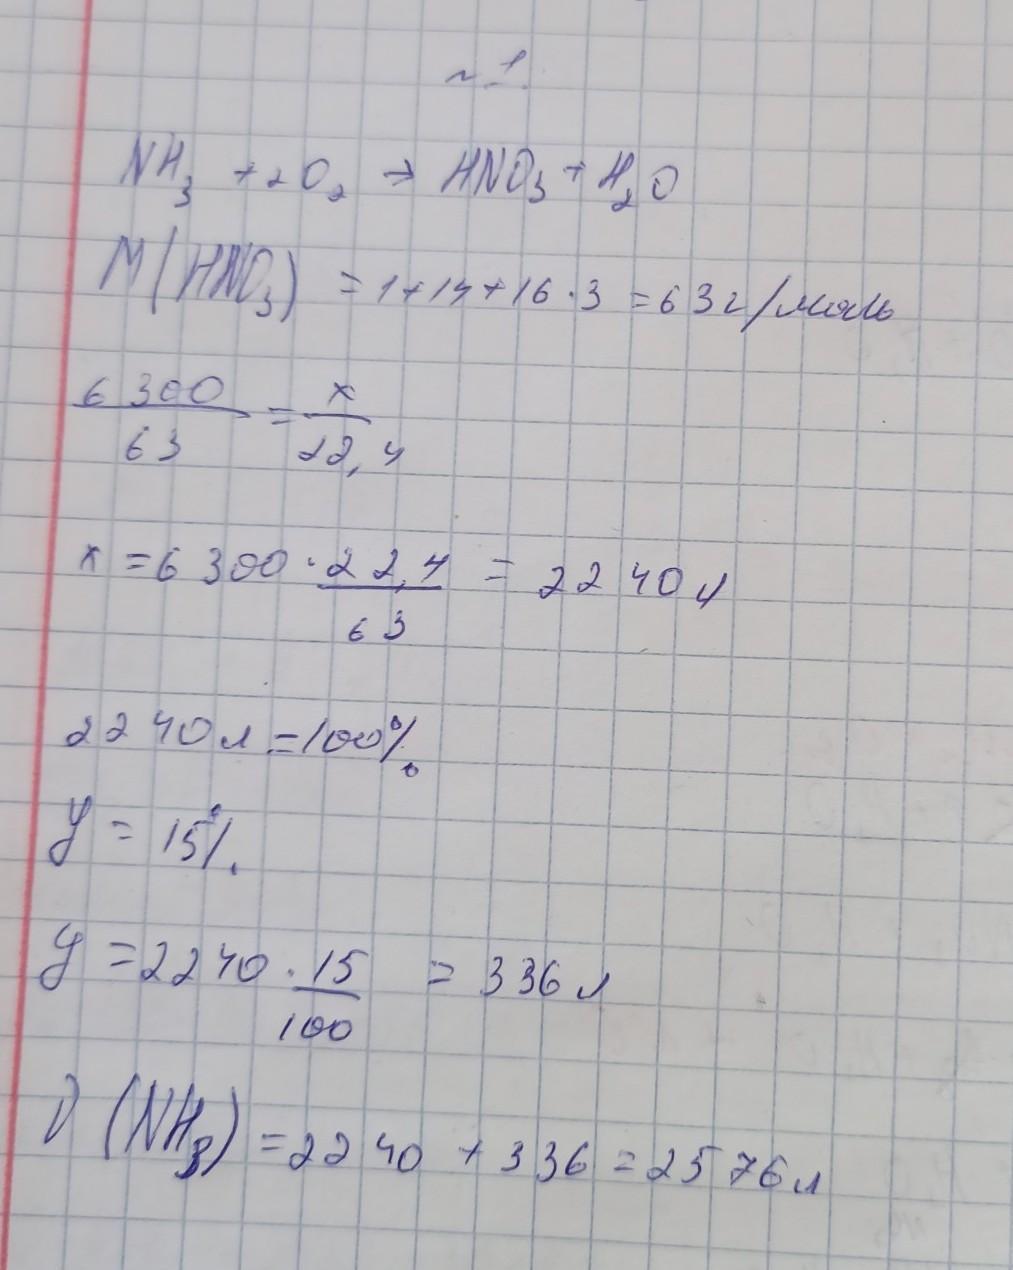 ~ 1
NH₃ + 2O₂ → HNO₃ + H₂O
M(HNO₃) = 1+14+16·3 = 63г/моль
6300/63 = x/22,4
x = 6300 · 22,4/63 = 2240л
2240л = 100%
y = 15%
y = 2240 · 15/100 = 336л
V(NH₃) = 2240 + 336 = 2576л